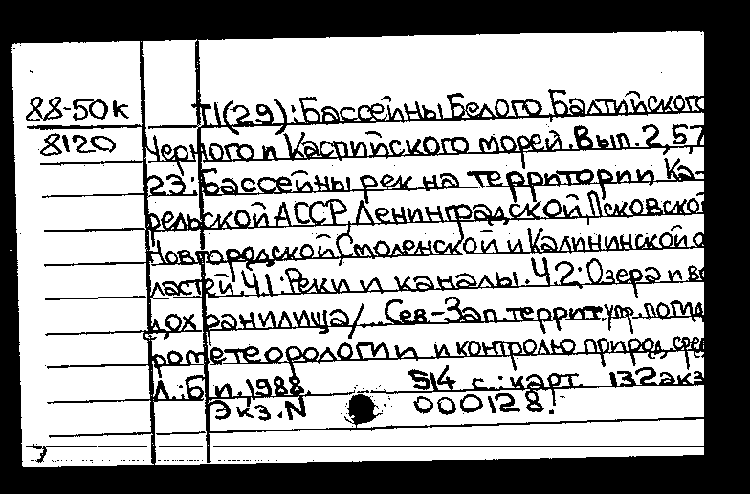 88-50к Т1(29):Бассейны Белого, Балтийского
8120 Черного и Каспийского морей.Вып.2,5,7
23:Бассейны рек на территории Ка-
рельской АССР,Ленинградской,Псковской
Новгородской,Смоленской и Калининской о
ластей.Ч.1:Реки и каналы.Ч.2:Озера и во
дохранилища/...Сев-Зап.террит.упр.по гид
рометеорологии и контролю природ.сре
Л.:Б и,1988. 514 с.:карт. 132экз
Экз.N 000128!